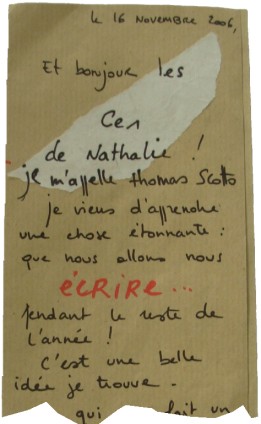 le 16 Novembre 2006,
Et bonjour les
Ce1
de Nathalie !
je m'appelle thomas Scotto
je viens d'apprendre
une chose étonnante :
que nous allons nous
ÉCRIRE...
pendant le reste de
l'année !
C'est une belle
idée je trouve.
qui fait un